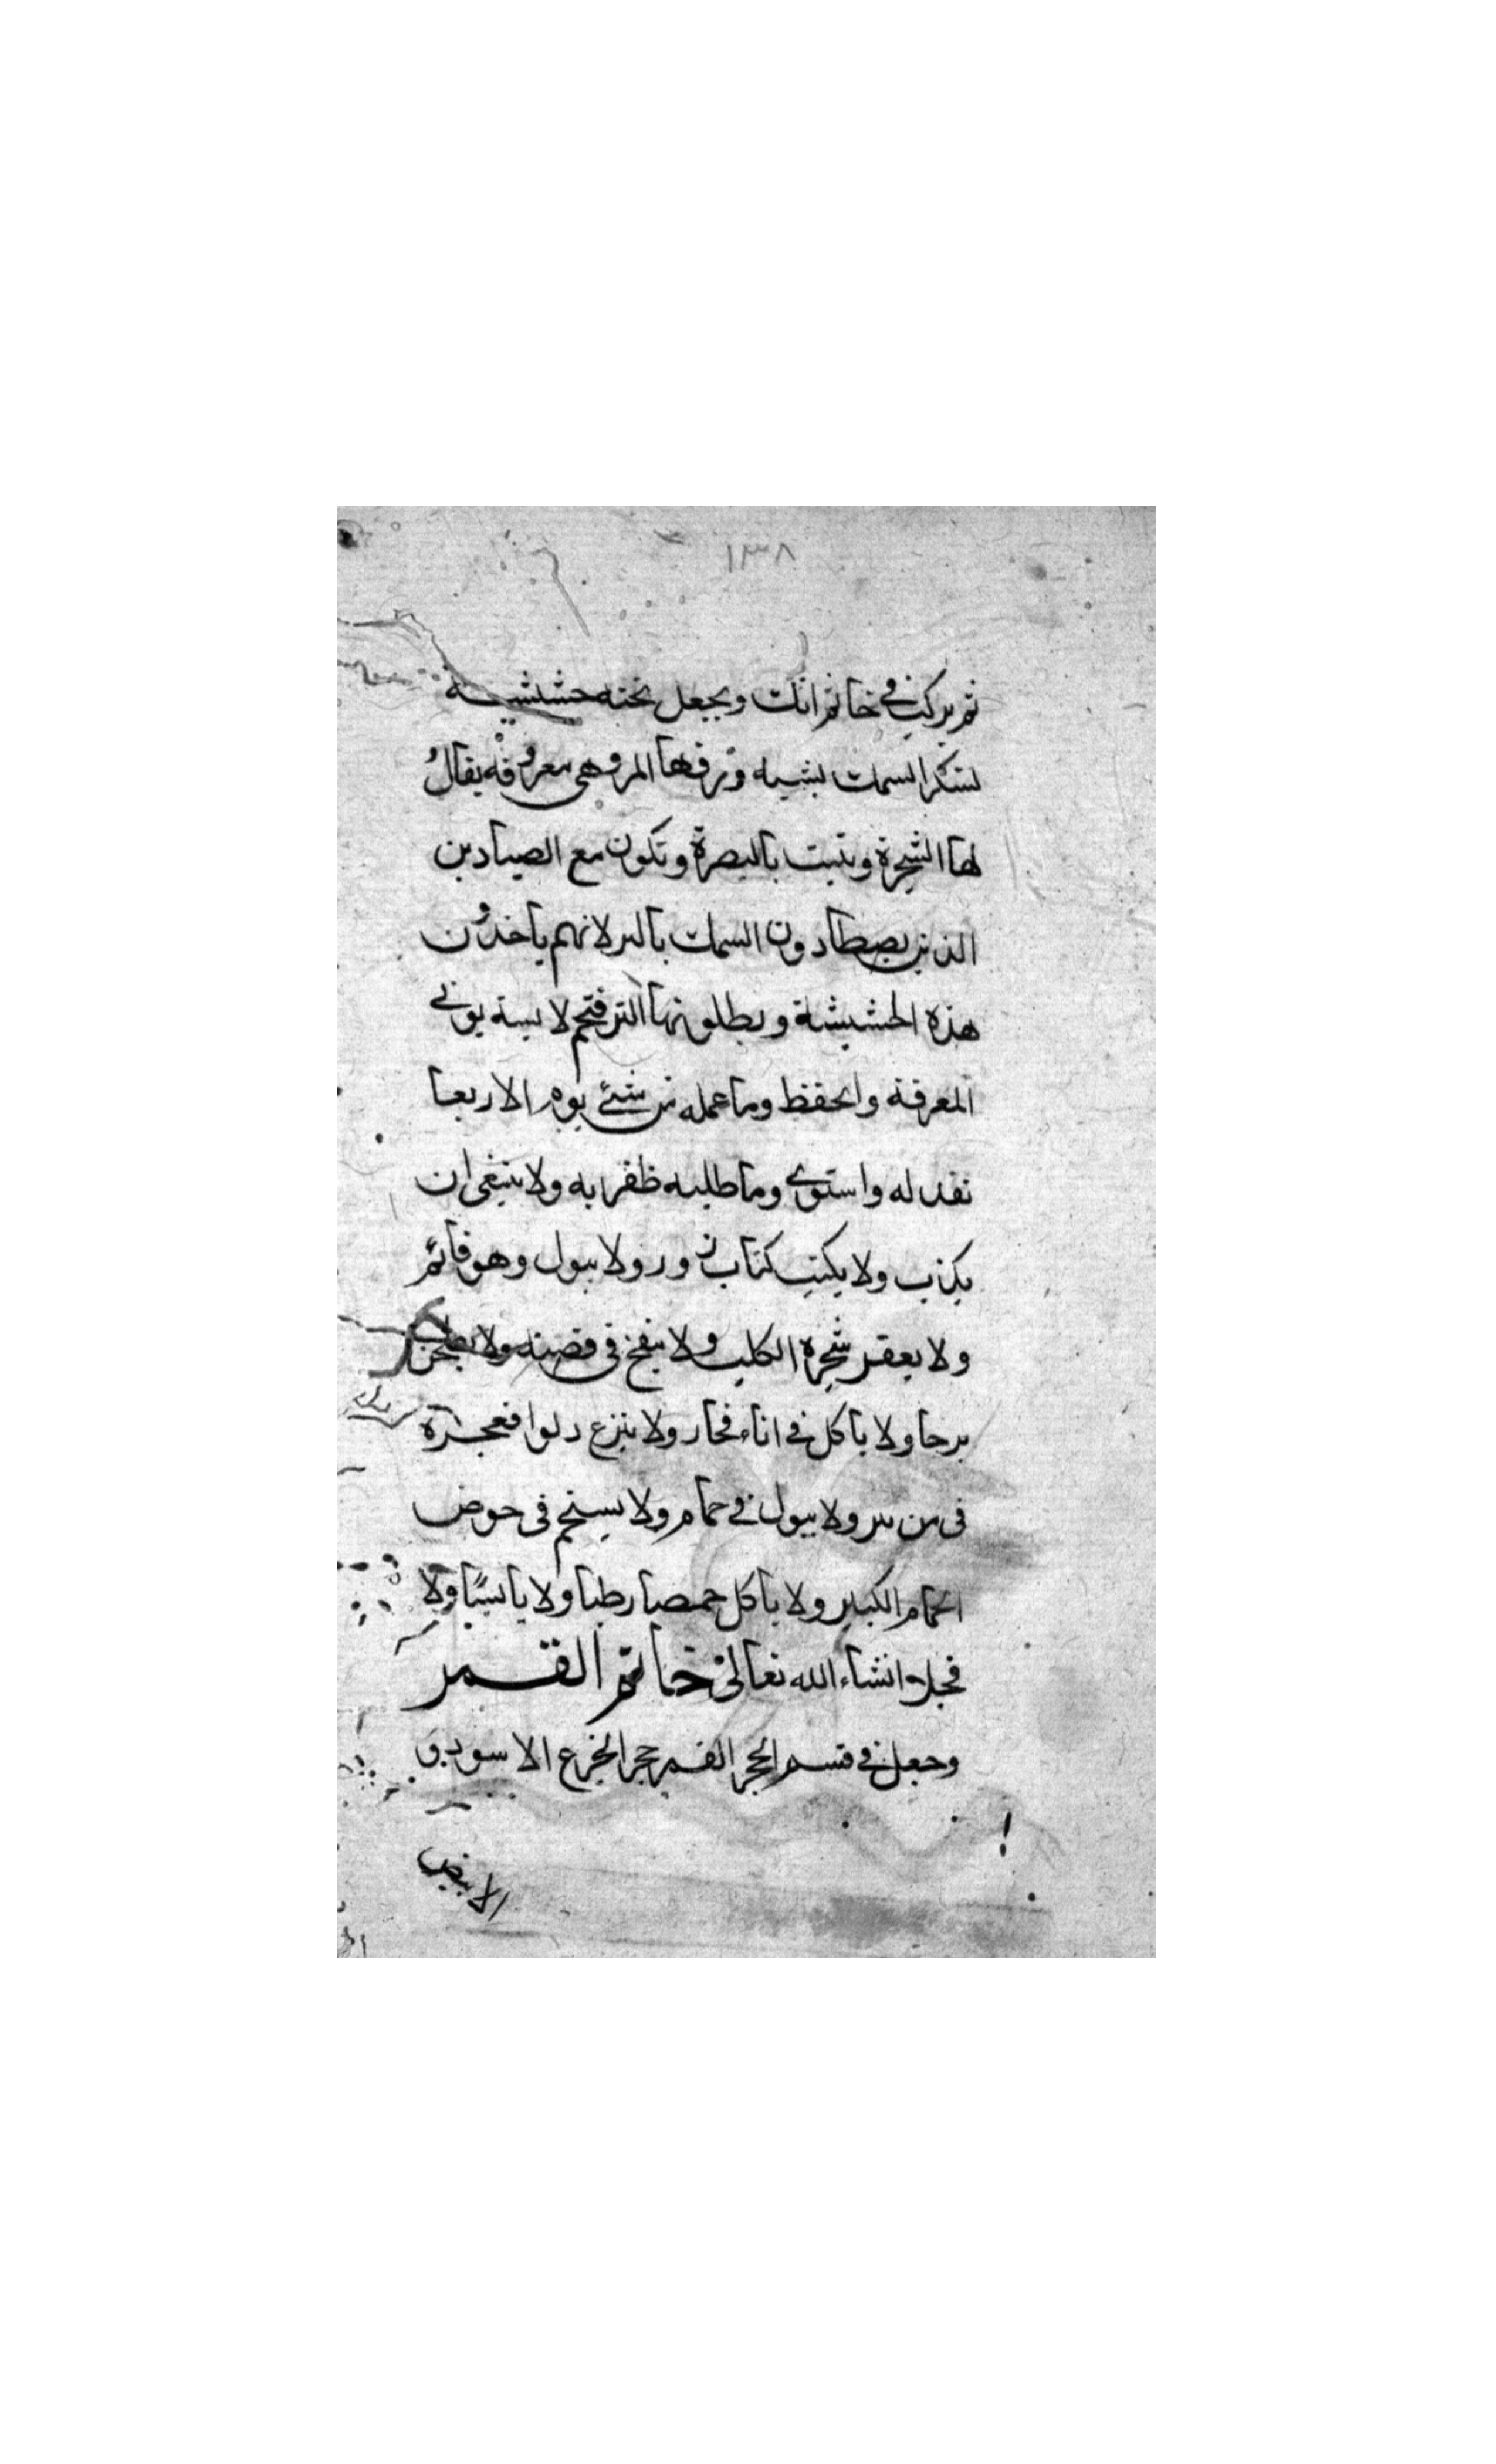 ١٣٨
ثم يركب في خاتم انك ويجعل تحته حشيشة
لسكر السمك بشيه ورقها المر وهي معروفه يقال
لها الشجرة وينبت بالبصرة وتكون مع الصيادين
الذين يصطادون السمك بالبر لانهم ياخذون
هذه الحشيشة ويطلونها لا
المعرفة والحفظ وما عمله من شئ يوم الاربعا
نفد له واستوى وما طلبه ظفر به ولا ينبغى ان
يكذب ولا يكتب كتاب زور ولا يبول وهو قائم
ولا يعقر شجرة الكلب ولا ينفخ في قصبة ولا يطحن
برحا ولا ياكل في اناء فخار ولا ينزع دلوا
في من بير ولا يبول في حمام ولا يستحم في حوض
الحمام الكبير ولا ياكل حمصا رطبا ولا يابسًا ولا
فجلا انشاء الله تعالى خاتم القمر
وجعل في قسم الحجر القمر حجر الجزع الاسود و
الابيض